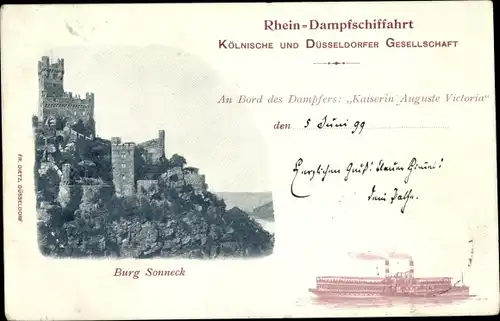 Rhein-Dampfschiffahrt
Kölnische und Düsseldorfer Gesellschaft
An Bord des Dampfers: „Kaiserin Auguste Victoria"
den 5 Juni 99
Herzlichen Gruß!
Dein
Burg Sonneck
FR. DIETZ, DÜSSELDORF